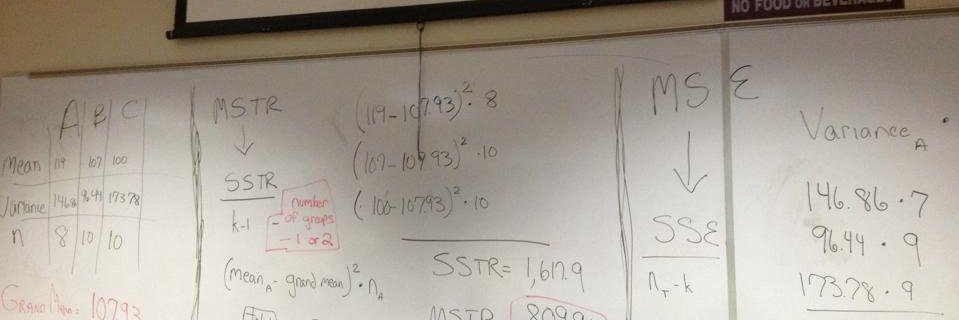 NO FOOD OR BEVERAGES
A B C
Mean 119 107 100
Variance 146.8 96.44 173.78
n 8 10 10
GRAND Mean = 107.93
MSTR
SSTR
k-1
- number
of groups
- 1 or 2
(mean A - grand mean)² · n A
(119-107.93)² · 8
(107-107.93)² · 10
(100-107.93)² · 10
SSTR = 1,617.9
MSTR 809.9
MSE
SSE
n T - k
Variance A ·
146.86 · 7
96.44 · 9
173.78 · 9